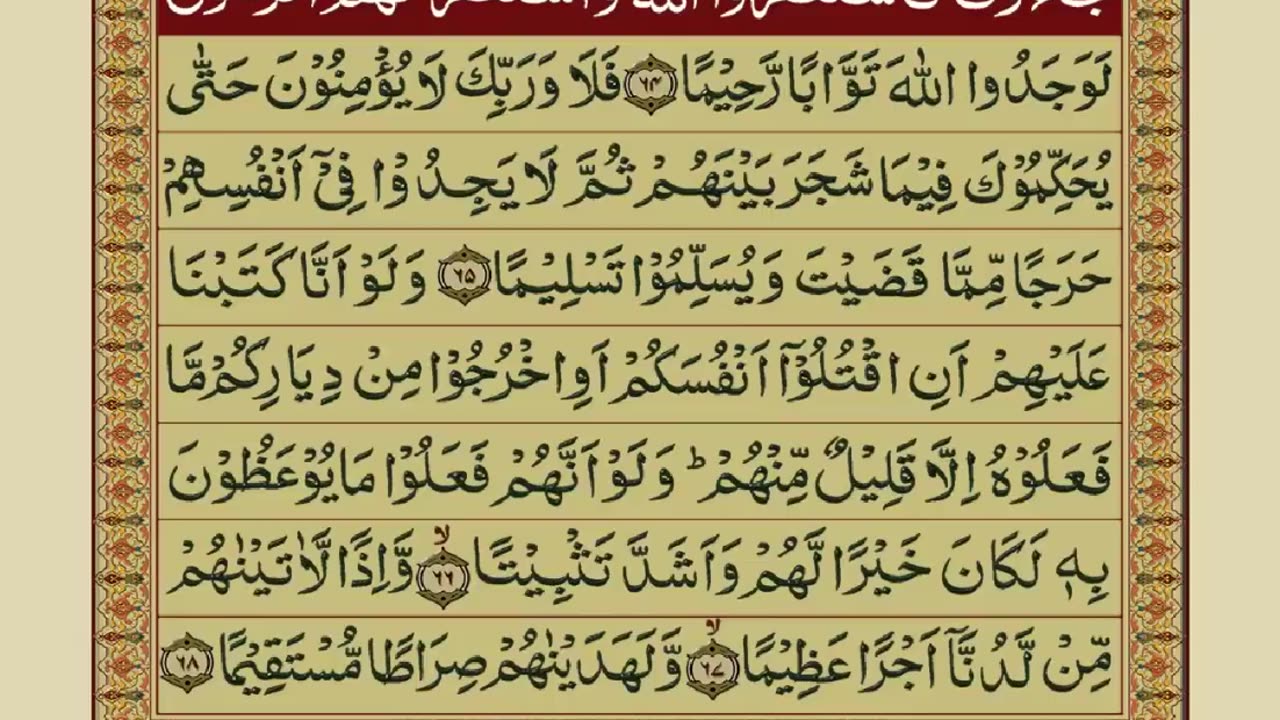 لَوَجَدُوا اللّٰهَ تَوَّابًا رَّحِيْمًا ۶۴ فَلَا وَرَبِّكَ لَا يُؤْمِنُوْنَ حَتّٰى
يُحَكِّمُوْكَ فِيْمَا شَجَرَ بَيْنَهُمْ ثُمَّ لَا يَجِدُوْا فِىْٓ اَنْفُسِهِمْ
حَرَجًا مِّمَّا قَضَيْتَ وَيُسَلِّمُوْا تَسْلِيْمًا ۶۵ وَلَوْ اَنَّا كَتَبْنَا
عَلَيْهِمْ اَنِ اقْتُلُوْٓا اَنْفُسَكُمْ اَوِ اخْرُجُوْا مِنْ دِيَارِكُمْ مَّا
فَعَلُوْهُ اِلَّا قَلِيْلٌ مِّنْهُمْ ؕ وَلَوْ اَنَّهُمْ فَعَلُوْا مَا يُوْعَظُوْنَ
بِهٖ لَكَانَ خَيْرًا لَّهُمْ وَاَشَدَّ تَثْبِيْتًا ۙ ۶۶ وَّاِذًا لَّاٰتَيْنٰهُمْ
مِّنْ لَّدُنَّآ اَجْرًا عَظِيْمًا ۙ ۶۷ وَّلَهَدَيْنٰهُمْ صِرَاطًا مُّسْتَقِيْمًا ۶۸